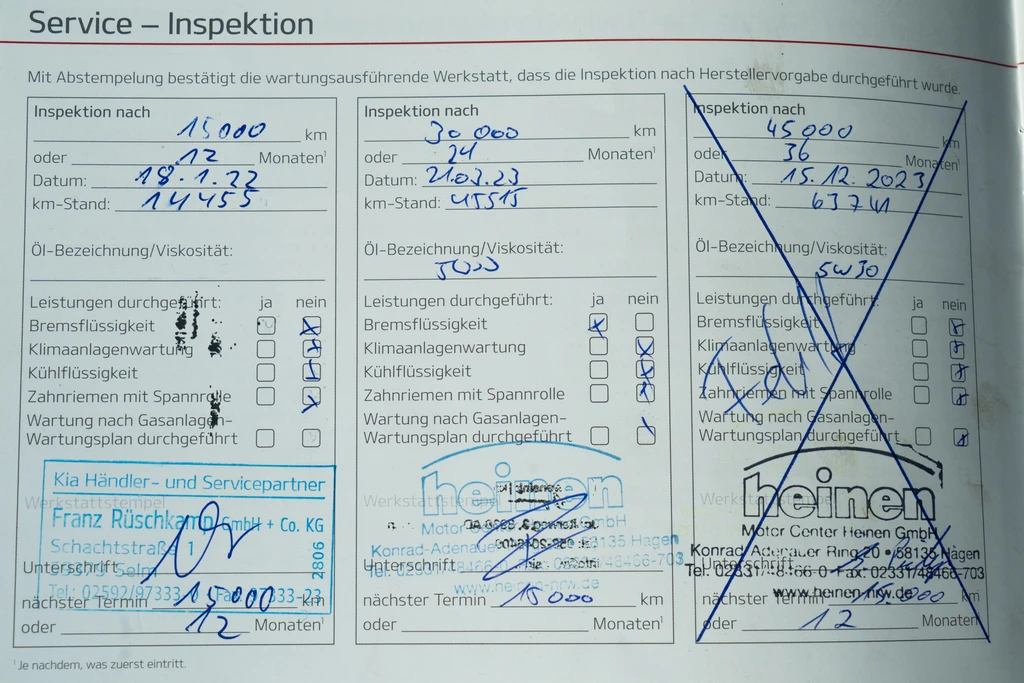 Service – Inspektion
Mit Abstempelung bestätigt die wartungsausführende Werkstatt, dass die Inspektion nach Herstellervorgabe durchgeführt wurde.
Inspektion nach
15000 km
oder 12 Monaten¹
Datum: 18.1.22
km-Stand: 14455
Öl-Bezeichnung/Viskosität:
Leistungen durchgeführt: ja nein
Bremsflüssigkeit
Klimaanlagenwartung
Kühlflüssigkeit
Zahnriemen mit Spannrolle
Wartung nach Gasanlagen-
Wartungsplan durchgeführt
Kia Händler- und Servicepartner
Werkstattstempel
Franz Rüschkamp GmbH + Co. KG
Schachtstraße 1
Selm
Unterschrift
Tel.: 02592/97333
2806
nächster Termin 15000 km
oder 12 Monaten¹
Inspektion nach
30 000 km
oder 24 Monaten¹
Datum: 21.03.23
km-Stand: 45515
Öl-Bezeichnung/Viskosität:
Leistungen durchgeführt: ja nein
Bremsflüssigkeit
Klimaanlagenwartung
Kühlflüssigkeit
Zahnriemen mit Spannrolle
Wartung nach Gasanlagen-
Wartungsplan durchgeführt
heinen
Werkstattstempel
Motor GmbH
Konrad-Adenauer 58135 Hagen
Unterschrift
www.heinen-nrw.de
nächster Termin 15000 km
oder Monaten¹
Inspektion nach
45000 km
oder 36 Monaten¹
Datum: 15.12.2023
km-Stand: 63741
Öl-Bezeichnung/Viskosität:
5W30
Leistungen durchgeführt: ja nein
Bremsflüssigkeit
Klimaanlagenwartung
Kühlflüssigkeit
Zahnriemen mit Spannrolle
Wartung nach Gasanlagen-
Wartungsplan durchgeführt
heinen
Werkstattstempel
Motor Center Heinen GmbH
Konrad-Adenauer Ring 20 • 58135 Hagen
Unterschrift
Tel. 02331/48466-0 • Fax: 02331/48466-703
www.heinen-nrw.de
nächster Termin 15.000 km
oder 12 Monaten¹
¹Je nachdem, was zuerst eintritt.